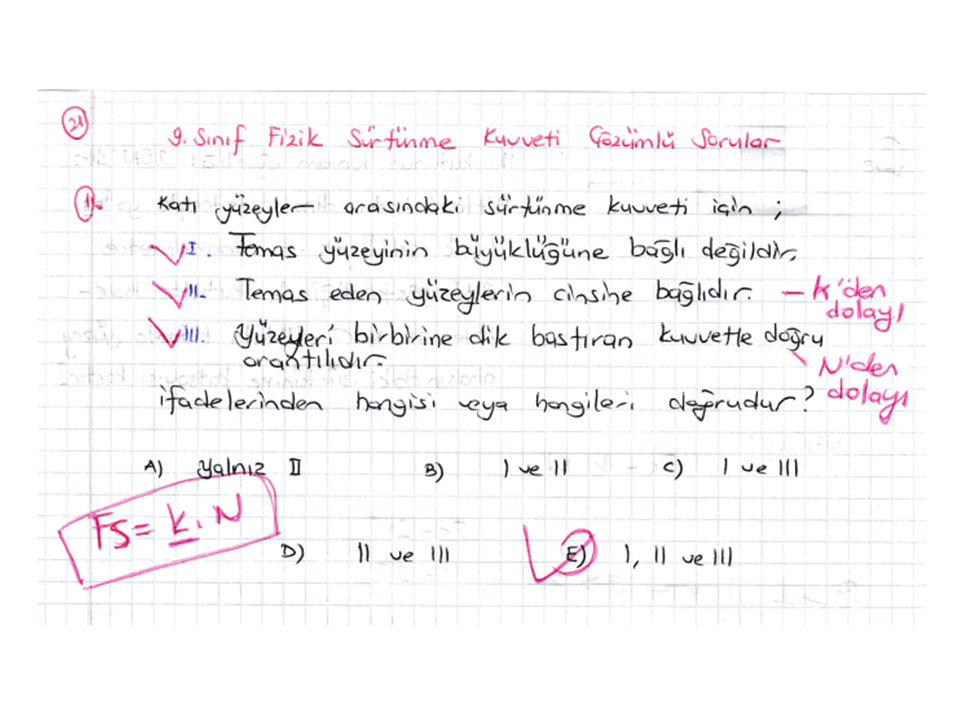 21
9. Sınıf Fizik Sürtünme Kuvveti Çözümlü Sorular
1. Katı yüzeyler arasındaki sürtünme kuvveti için ;
I. Temas yüzeyinin büyüklüğüne bağlı değildir.
II. Temas eden yüzeylerin cinsine bağlıdır. – k'den dolayı
III. Yüzeyleri birbirine dik bastıran kuvvetle doğru
orantılıdır.
N'den dolayı
ifadelerinden hangisi veya hangileri doğrudur?
A) Yalnız II
B) I ve II
C) I ve III
Fs = k . N
D) II ve III
E) I, II ve III